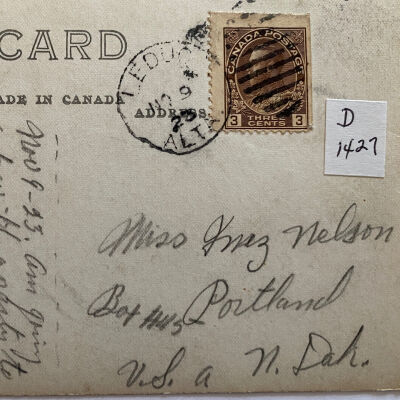 CARD
MADE IN CANADA
ADDRESS
LEDUC
NO 9
23
ALTA
CANADA POSTAGE
3 THREE CENTS 3
D
1427
Nov 9-23. Am going
Miss Inez Nelson
Box
Portland
U.S. a N. Dak.